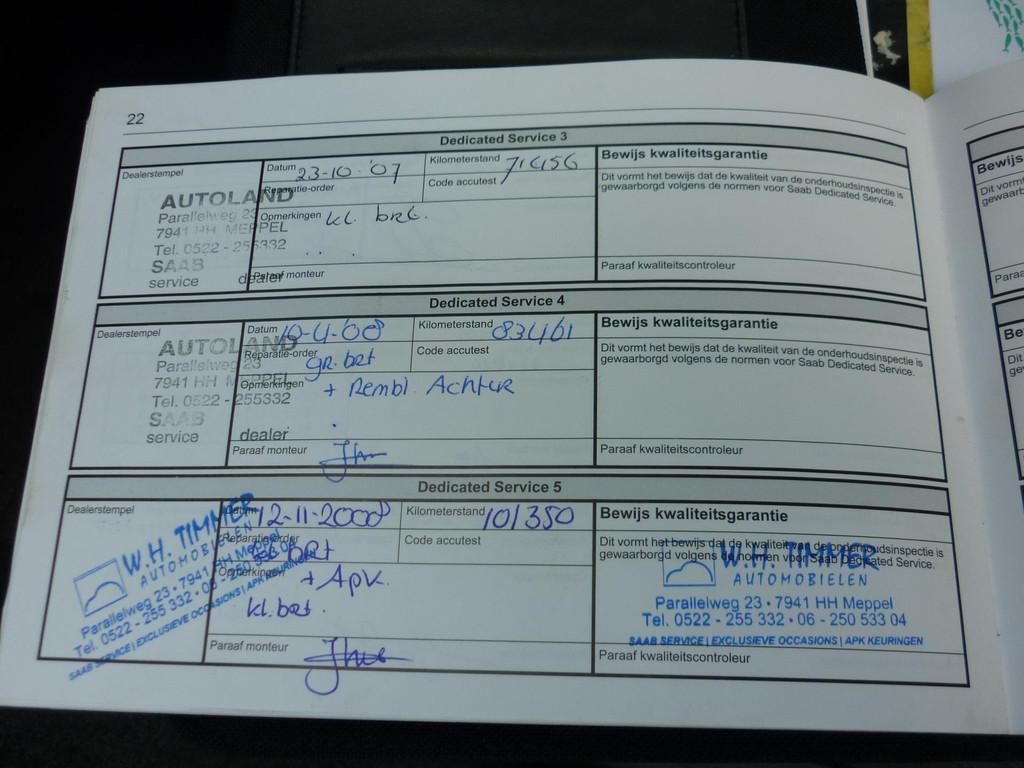 22
Dedicated Service 3
Dealerstempel
AUTOLAND
Parallelweg 23
7941 HH MEPPEL
Tel. 0522 - 255332
SAAB
service dealer
Datum 23-10-'07
Kilometerstand 71456
Reparatie-order
Code accutest
Opmerkingen kl. brt.
Paraaf monteur
Bewijs kwaliteitsgarantie
Dit vormt het bewijs dat de kwaliteit van de onderhoudsinspectie is
gewaarborgd volgens de normen voor Saab Dedicated Service.
Paraaf kwaliteitscontroleur
Dedicated Service 4
Dealerstempel
AUTOLAND
Parallelweg 23
7941 HH MEPPEL
Tel. 0522 - 255332
SAAB
service dealer
Datum 10-4-'08
Kilometerstand 83401
Reparatie-order gr. brt
Code accutest
Opmerkingen + Rembl. Achter
Paraaf monteur
Bewijs kwaliteitsgarantie
Dit vormt het bewijs dat de kwaliteit van de onderhoudsinspectie is
gewaarborgd volgens de normen voor Saab Dedicated Service.
Paraaf kwaliteitscontroleur
Dedicated Service 5
Dealerstempel
W.H. TIMMER
AUTOMOBIELEN
Parallelweg 23 • 7941 HH Meppel
Tel. 0522 - 255 332 • 06 - 250 533 04
SAAB SERVICE | EXCLUSIEVE OCCASIONS | APK KEURINGEN
Datum 12-11-2008
Kilometerstand 101350
Reparatie-order
Code accutest
Opmerkingen + Apk.
kl. brt.
Paraaf monteur
Bewijs kwaliteitsgarantie
Dit vormt het bewijs dat de kwaliteit van de onderhoudsinspectie is
gewaarborgd volgens de normen voor Saab Dedicated Service.
W.H. TIMMER
AUTOMOBIELEN
Parallelweg 23 • 7941 HH Meppel
Tel. 0522 - 255 332 • 06 - 250 533 04
SAAB SERVICE | EXCLUSIEVE OCCASIONS | APK KEURINGEN
Paraaf kwaliteitscontroleur
Bewijs
Dit vormt
gewaarb
Para
Be
Dit
gew